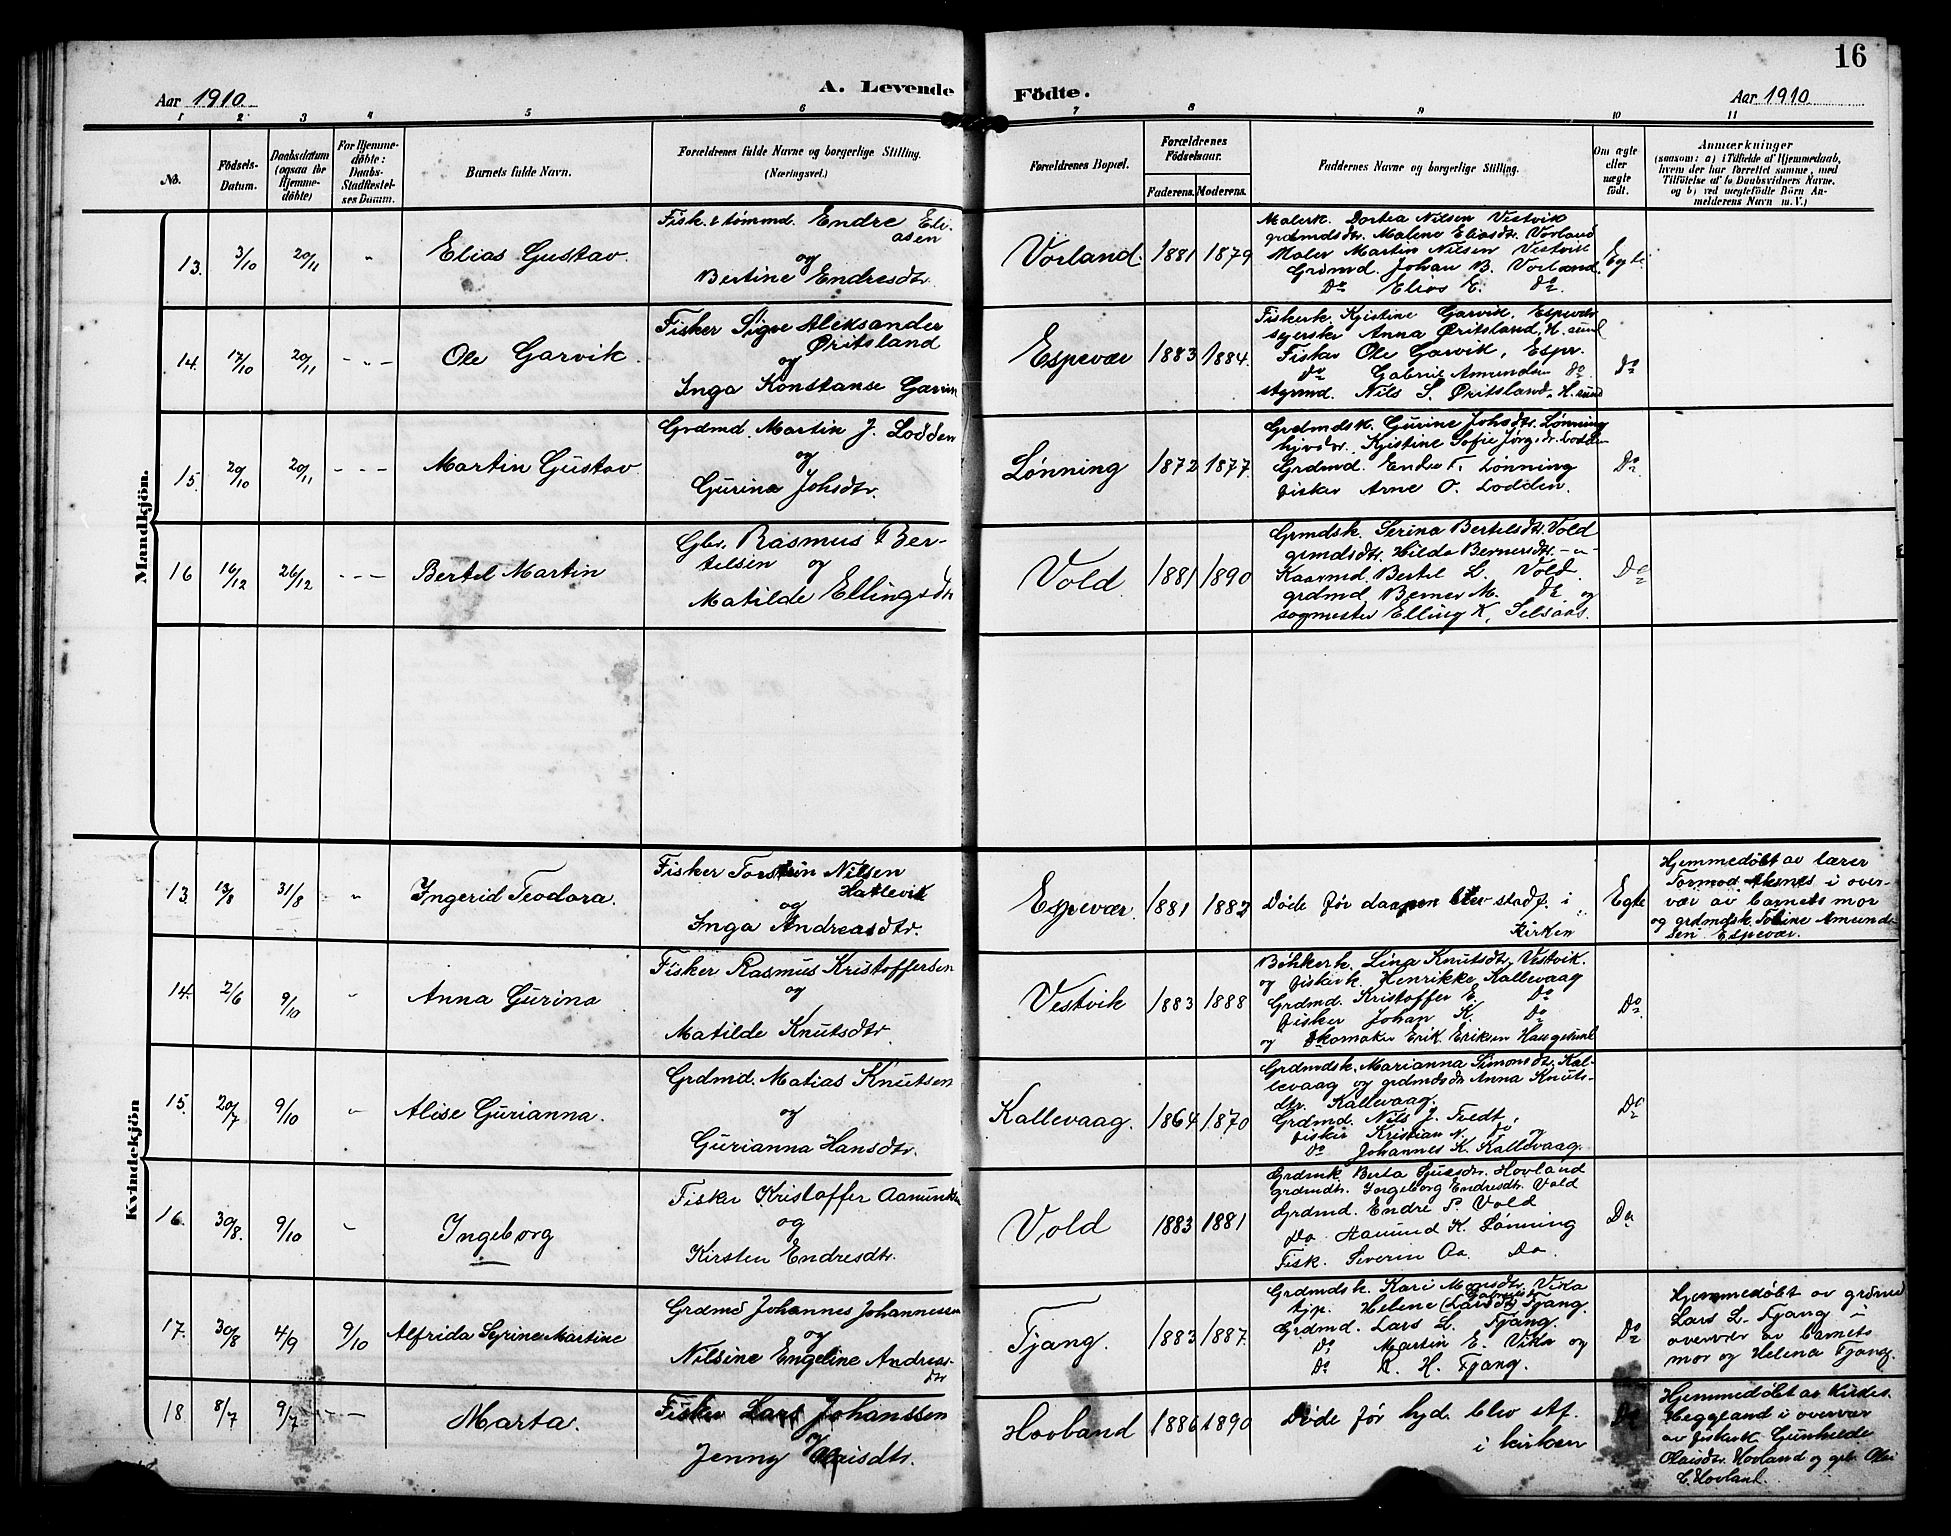 16
Aar 1910. A. Levende Födte. Aar 1910
1 2 3 4 5 6 7 8 9 10 11
No.
Födsels-
Datum.
Daabsdatum
(ogsaa for
Hjemme-
döbte)
For Hjemme-
döbte:
Daabs-
Stadfæstel-
ses Datum.
Barnets fulde Navn.
Forældrenes fulde Navne og borgerlige Stilling.
(Næringsvei.)
Forældrenes Bopæl.
Forældrenes
Födselsaar.
Faderens. Moderens.
Faddernes Navne og borgerlige Stilling.
Om ægte
eller
uægte
födt.
Anmærkninger
(saasom: a) i Tilfælde af Hjemmedaab,
hvem der har forrettet samme, med
Tilföielse af to Daabsvidners Navne,
og b) ved uegtefödte Börn An-
melderens Navn m. V.)
Mandkjön.
13. 3/10 20/11 „ Elias Gustav.
Fisk. & tømmd. Endre Eli-
asen
og
Bertine Endresdtr.
Vorland. 1881 1879
Malerk. Dortea Nilsen Vestvik
grdmdsdtr. Malene Eliasdtr. Vorland
Maler Martin Nilsen Vestvik
Grdmd. Johan B. Vorland.
Do Elias E. do.
Egte.
14. 17/10 20/11 - - - Ole Garvik.
Fisker Sigve Aleksander
Øritsland
og
Inga Konstanse Garvik
Espevær 1883 1884.
Fiskerk. Kjistine Garvik, Espevær
syerske Anna Øritsland, H.sund
Fisker Ole Garvik, Espr.
do Gabriel Amundsen do.
styrmd. Nils S. Øritsland, H.sund
Do
15. 20/10 20/11 - - - Martin Gustav
Grdmd. Martin J. Lodden
og
Gurina Johsdtr.
Lønning 1872 1877.
Grdmdsk. Gurine Johsdtr. Lønning
Kjistine Sofie Lodden
Grdmd. Endre T. Lønning
fisker Arne O. Lodden.
Do
16 16/12 26/12 - - - Bertel Martin
Gbr. Rasmus Ber-
telsen og
Matilde Ellingsdtr
Vold 1881 1890
Grmdsk. Serina Bertelsdtr. Vold
grmdsdtr. Hilda Bernersdtr. -"-
Kaarmd. Bertel L. Vold.
grdmd Berner M. do og
sogmester Elling K. Selsaas.
Do
Kvindekjön
13. 13/8 31/8 „ Ingerid Teodora.
Fisker Torstein Nilsen
Hatlevik
og
Inga Andreasdtr.
Espevær. 1881 1882
Døde før daapen blev stadf. i
Kirken
Egte
Hjemmedøbt av lærer
Tormod Aknes i over-
vær av barnets mor
og grdmdsk. Amund-
sen Espevær.
14. 2/6 9/10 „ Anna Gurina
Fisker Rasmus Kristoffersen
og
Matilde Knutsdtr.
Vestvik 1883 1888
Bøkkerk. Lina Knutsdtr. Vestvik.
og fiskerk. Henrikke Kallevaag
Grdmd. Kristoffer E. do
fisker Johan K. Do
og Skomaker Erik Eriksen Haugesund
Do.
15. 20/7 9/10 „ Alise Gurianna.
Grdmd. Matias Knutsen
og
Gurianna Hansdtr.
Kallevaag. 1864 1870
Grdmdsk. Marianna Simonsdtr. Kal-
levaag og grdmdsdtr Anna Knuts-
dtr. Kallevaag.
Grdmd. Nils J. Tvedt,
fisker Kristian N. do og
do Johannes K. Kallevaag.
Do
16. 30/8. 9/10 „ Ingeborg
Fisker Kristoffer Aamundsen
og
Kirsten Endresdtr.
Vold 1883 1881
Grdmk Berta Hovland
grdmdtr. Ingeborg Endresdtr. Vold
Grdmd. Endre P. Vold
Do. Aamund K. Lønning
Fisk. Severin Aa. Do.
Do
17. 30/8 4/9 9/10 Alfrida Syrine Martine
Grdmd Johannes Johannessen
og
Nilsine Engeline Andreas-
dtr
Tjang. 1883 1887.
Grdmdsk. Kari Monsdtr. Vika
tjp. Helene Tjang.
Grdmd. Lars L. Tjang.
Do Martin E. Vika og
Do K. H. Tjang.
Do
Hjemmedøbt av grdmd
Lars L. Tjang i
overvær av barnets
mor og Helena Tjang.
18. 8/7 9/7 - - Marta.
Fisker Lars Johanssen
Jenny
Hovland 1886 1890
Døde før hjd. blev stf.
i kirken
Do
Hjemmedøbt av Kirkes.
Heggland i overvær
av fiskerk. Gunhilde
Olaisdtr. Hovland og gbr. Olai
C. Hovland.